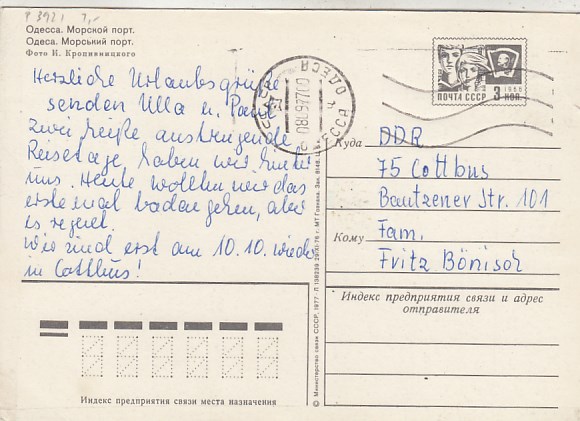 P 3921 7,-
Одесса. Морской порт.
Одеса. Морський порт.
Фото К. Кропивницкого
Herzliche Urlaubsgrüße
senden Ulla u. Paul
zwei heiße anstrengende
Reisetage haben wir hinter
uns. Heute wollten wir das
erste mal baden gehen, aber
es regnet.
Wir sind erst am 10.10. wieder
in Cottbus!
ОДЕССА
ПОЧТА СССР 3 коп.
1966
Куда DDR
75 Cottbus
Bautzener Str. 101
Кому Fam.
Fritz Bönisch
Индекс предприятия связи и адрес
отправителя
Индекс предприятия связи места назначения
© Министерство связи СССР, 1977